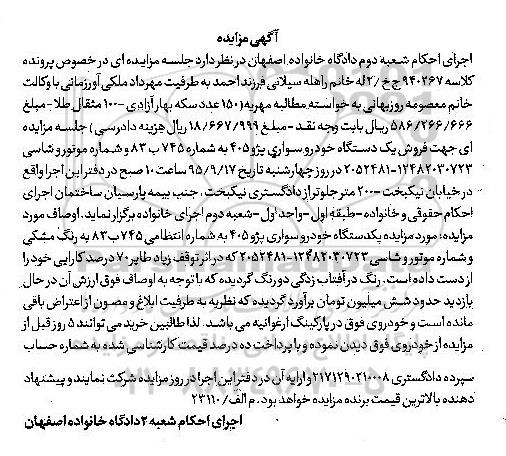 آگهی مزایده
اجرای احکام شعبه دوم دادگاه خانواده اصفهان در نظر دارد جلسه مزایده ای در خصوص پرونده
کلاسه ۹۴۰۲۶۷ ج خ / ۲ له خانم راهله سیلانی فرزند احمد به طرفیت مهرداد ملکی آورزمانی با وکالت
خانم معصومه روزبهانی به خواسته مطالبه مهریه (۱۵۰ عدد سکه بهار آزادی -۱۰۰ مثقال طلا- مبلغ
۵۸۶/۲۶۶/۶۶۶ ریال بابت وجه نقد - مبلغ ۱۸/۶۶۷/۹۹۹ ریال هزینه دادرسی) جلسه مزایده
ای جهت فروش یک دستگاه خودرو سواری پژو ۴۰۵ به شماره ۷۴۵ ب ۸۳ و شماره موتور و شاسی
۱۲۴۸۲۰۳۰۷۲۳-۲۰۵۲۴۸۱ در روز چهارشنبه تاریخ ۹۵/۹/۱۷ ساعت ۱۰ صبح در دفتر این اجرا واقع
در خیابان نیکبخت -۲۰۰ متر جلوتر از دادگستری نیکبخت ، جنب بیمه پارسیان ساختمان اجرای
احکام حقوقی و خانواده - طبقه اول - واحد اول - شعبه دوم اجرای خانواده برگزار نماید. اوصاف مورد
مزایده: مورد مزایده یکدستگاه خودرو سواری پژو ۴۰۵ به شماره انتظامی ۷۴۵ ب ۸۳ به رنگ مشکی
و شماره موتور و شاسی ۱۲۴۸۲۰۳۰۷۲۳-۲۰۵۲۴۸۱ که در اثر توقف زیاد طایر ۷۰ درصد کارایی خود را
از دست داده است. رنگ در آفتاب زدگی دو رنگ گردیده که با توجه به اوصاف فوق ارزش آن در حال
بازدید حدود شش میلیون تومان برآورد گردیده که نظریه به طرفیت ابلاغ و مصون از اعتراض باقی
مانده است و خودروی فوق در پارکینگ ارغوانیه می باشد. لذا طالبین خرید می توانند ۵ روز قبل از
مزایده از خودروی فوق دیدن نموده و با پرداخت ده درصد قیمت کارشناسی شده به شماره حساب
سپرده دادگستری ۲۱۷۱۲۹۰۲۱۰۰۰۸ و ارایه آن در دفتر این اجرا در روز مزایده شرکت نمایند و پیشنهاد
دهنده بالاترین قیمت برنده مزایده خواهد بود. م الف/ ۲۳۱۱۰
اجرای احکام شعبه ۲ دادگاه خانواده اصفهان